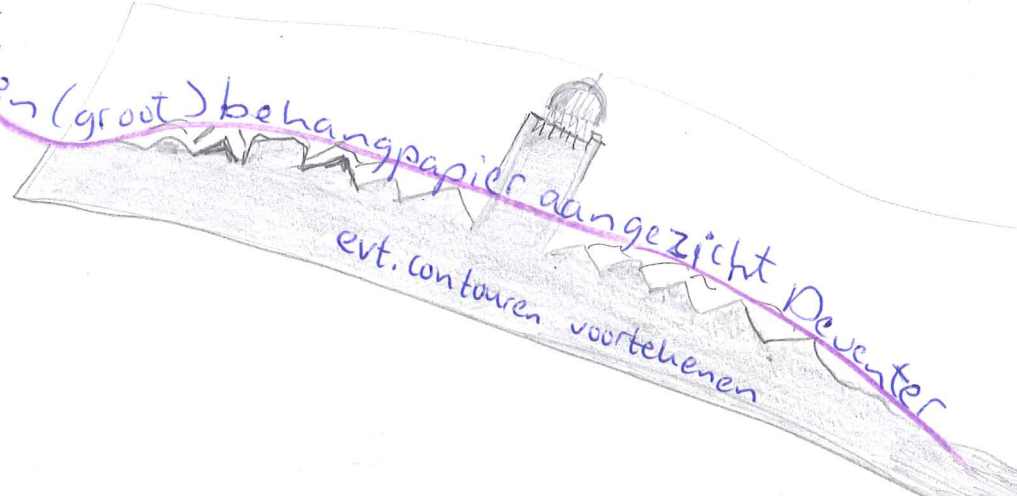 (groot) behangpapier aangezicht Deventer
evt. contouren voortekenen